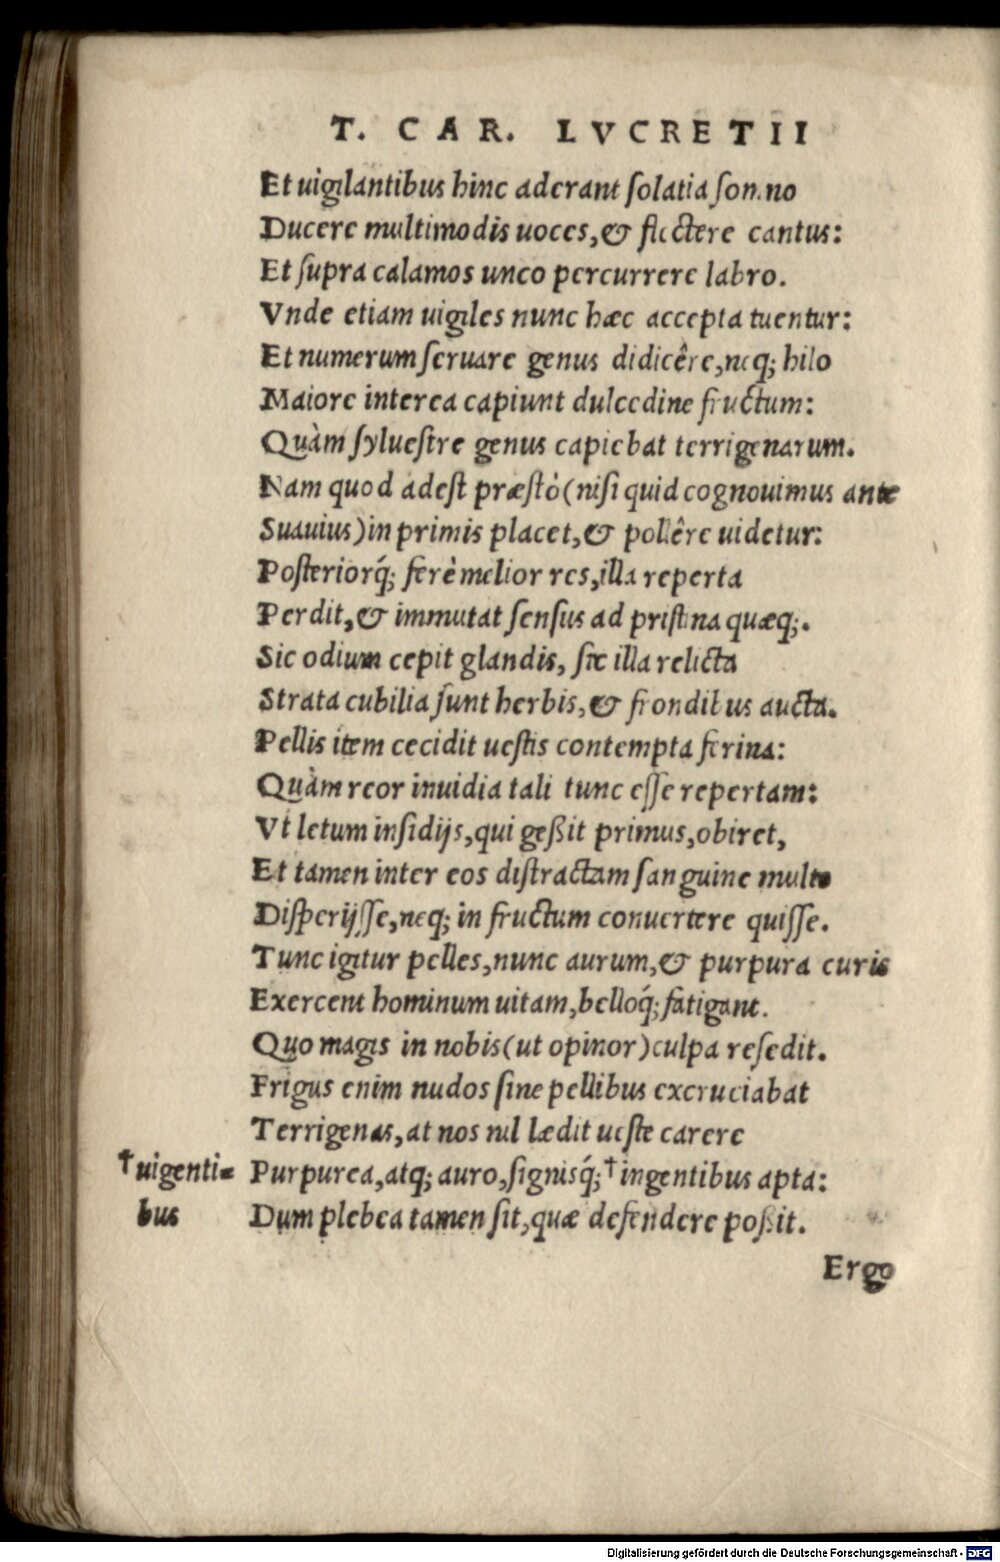 T. CAR. LVCRETII
Et uigilantibus hinc aderant ſolatia ſomno
Ducere multimodis uoces, & flectere cantus:
Et ſupra calamos unco percurrere labro.
Vnde etiam uigiles nunc hæc accepta tuentur:
Et numerum ſeruare genus didicêre, neq; hilo
Maiore interea capiunt dulcedine fructum:
Quàm ſylueſtre genus capiebat terrigenarum.
Nam quod adeſt præſtò (niſi quid cognouimus ante
Suauius) in primis placet, & pollêre uidetur:
Poſteriorq́; ferè melior res, illa reperta
Perdit, & immutat ſenſus ad priſtina quæq;.
Sic odium cepit glandis, ſic illa relicta
Strata cubilia ſunt herbis, & frondibus aucta.
Pellis item cecidit ueſtis contempta ferina:
Quàm reor inuidia tali tunc eſſe repertam:
Vt letum inſidijs, qui geßit primus, obiret,
Et tamen inter eos diſtractam ſanguine multo
Diſperijſſe, neq; in fructum conuertere quiſſe.
Tunc igitur pelles, nunc aurum, & purpura curis
Exercent hominum uitam, belloq́; fatigant.
Quo magis in nobis (ut opinor) culpa reſedit.
Frigus enim nudos ſine pellibus excruciabat
Terrigenas, at nos nil lædit ueſte carere
†uigenti=
bus
Purpurea, atq; auro, ſignisq́; †ingentibus apta:
Dum plebea tamen ſit, quæ defendere poßit.
Ergo
Digitalisierung gefördert durch die Deutsche Forschungsgemeinschaft - DFG